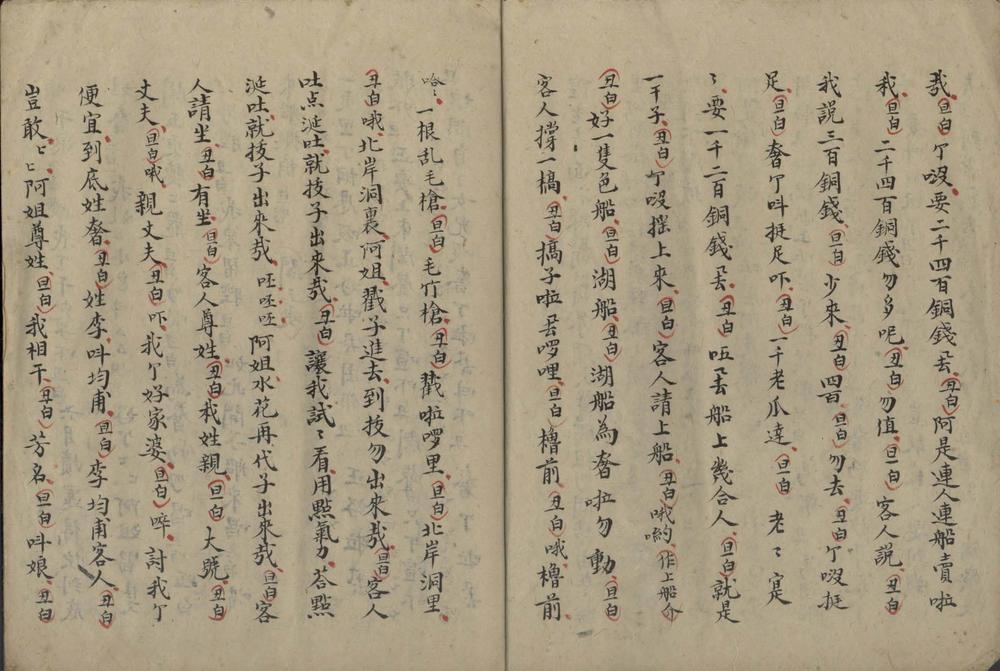 哉（旦白）个哎要二千四百銅錢丢（丑白）阿是連人連船賣啦
我（旦白）二千四百銅錢勿多呢（丑白）勿值（旦白）客人説（丑白）
我説三百銅錢（旦白）少來（丑白）四百（旦白）勿去（丑白）个哎挺
足（旦白）奢个呌挺足吓（丑白）一千老爪達（旦白）老〻寔
〻要一千二百銅錢丢（丑白）唔丢船上幾合人（旦白）就是
一千子（丑白）个哎摇上來（旦白）客人請上船（丑白）哦喲作上船介
（丑白）好一隻色船（旦白）湖船（丑白）湖船為奢啦勿動（旦白）
客人撐一槁（丑白）搞子啦丢啰哩（旦白）櫓前（丑白）哦櫓前
哈〻一根乱毛槍（旦白）毛竹槍（丑白）戳啦啰里（旦白）北岸洞里
（丑白）哦北岸洞裏阿姐戳子進去到技勿出來哉（旦白）客人
吐点涎吐就技子出來哉（丑白）讓我試〻看用㸃氣力荅㸃
涎吐就技子出來哉呸呸呸阿姐水花再代子出來哉（旦白）客
人請坐（丑白）有坐（旦白）客人尊姓（丑白）我姓親（旦白）大號（丑白）
丈夫（旦白）哦親丈夫（丑白）吓我个好家婆（旦白）啐討我个
便宜到底姓奢（丑白）姓李呌均甫（旦白）李均甫客人（丑白）
豈敢〻〻阿姐尊姓（旦白）我相干（丑白）芳名（旦白）呌娘（丑白）